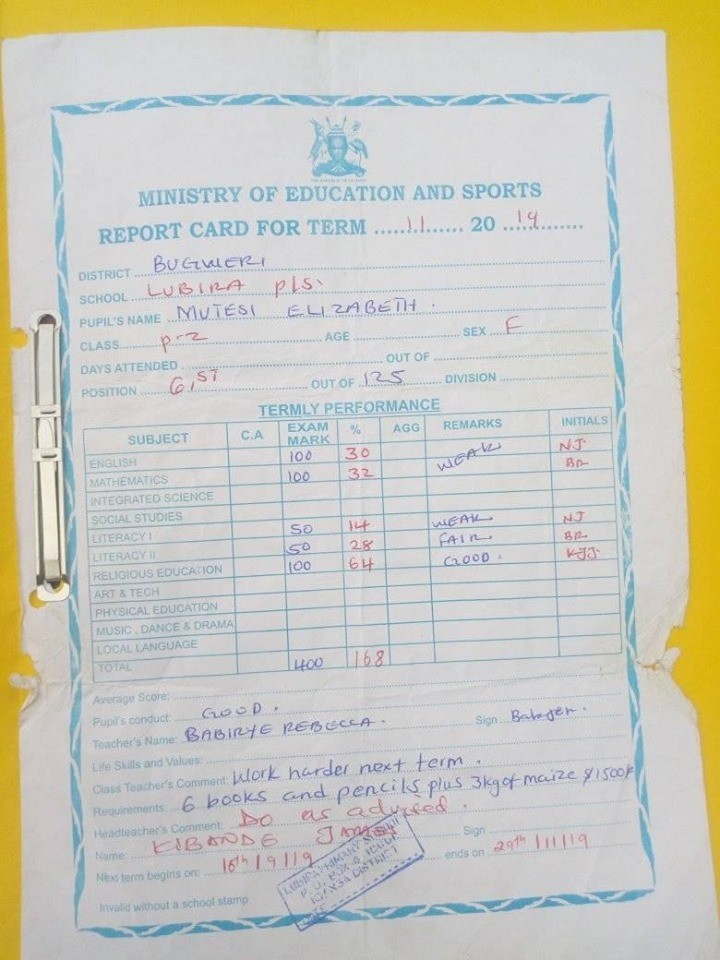 THE REPUBLIC OF UGANDA
MINISTRY OF EDUCATION AND SPORTS
REPORT CARD FOR TERM ...11... 20 ...19...
DISTRICT BUGWERI
SCHOOL LUBIRA p/s.
PUPIL'S NAME MUTESI ELIZABETH.
CLASS p-2 AGE SEX F
DAYS ATTENDED OUT OF
POSITION 61,ST OUT OF 125 DIVISION
TERMLY PERFORMANCE
SUBJECT C.A EXAM MARK % AGG REMARKS INITIALS
ENGLISH 100 30 NJ
MATHEMATICS 100 32 WEAK BR
INTEGRATED SCIENCE
SOCIAL STUDIES
LITERACY I 50 14 WEAK NJ
LITERACY II 50 28 FAIR BR
RELIGIOUS EDUCATION 100 64 GOOD. KJJ
ART & TECH
PHYSICAL EDUCATION
MUSIC, DANCE & DRAMA
LOCAL LANGUAGE
TOTAL 400 168
Average Score:
Pupil's conduct: GOOD.
Teacher's Name: BABIRYE REBECCA. Sign
Life Skills and Values:
Class Teacher's Comment: Work harder next term.
Requirements: 6 books and pencils plus 3kg of maize $1500/=
Headteacher's Comment: Do as advised.
Name: KIBANDE JAMES Sign
Next term begins on: 16th/9/19 ends on 29th/11/19
Invalid without a school stamp
LUBIRA PRIMARY SCHOOL
P.O. BOX
DISTRICT